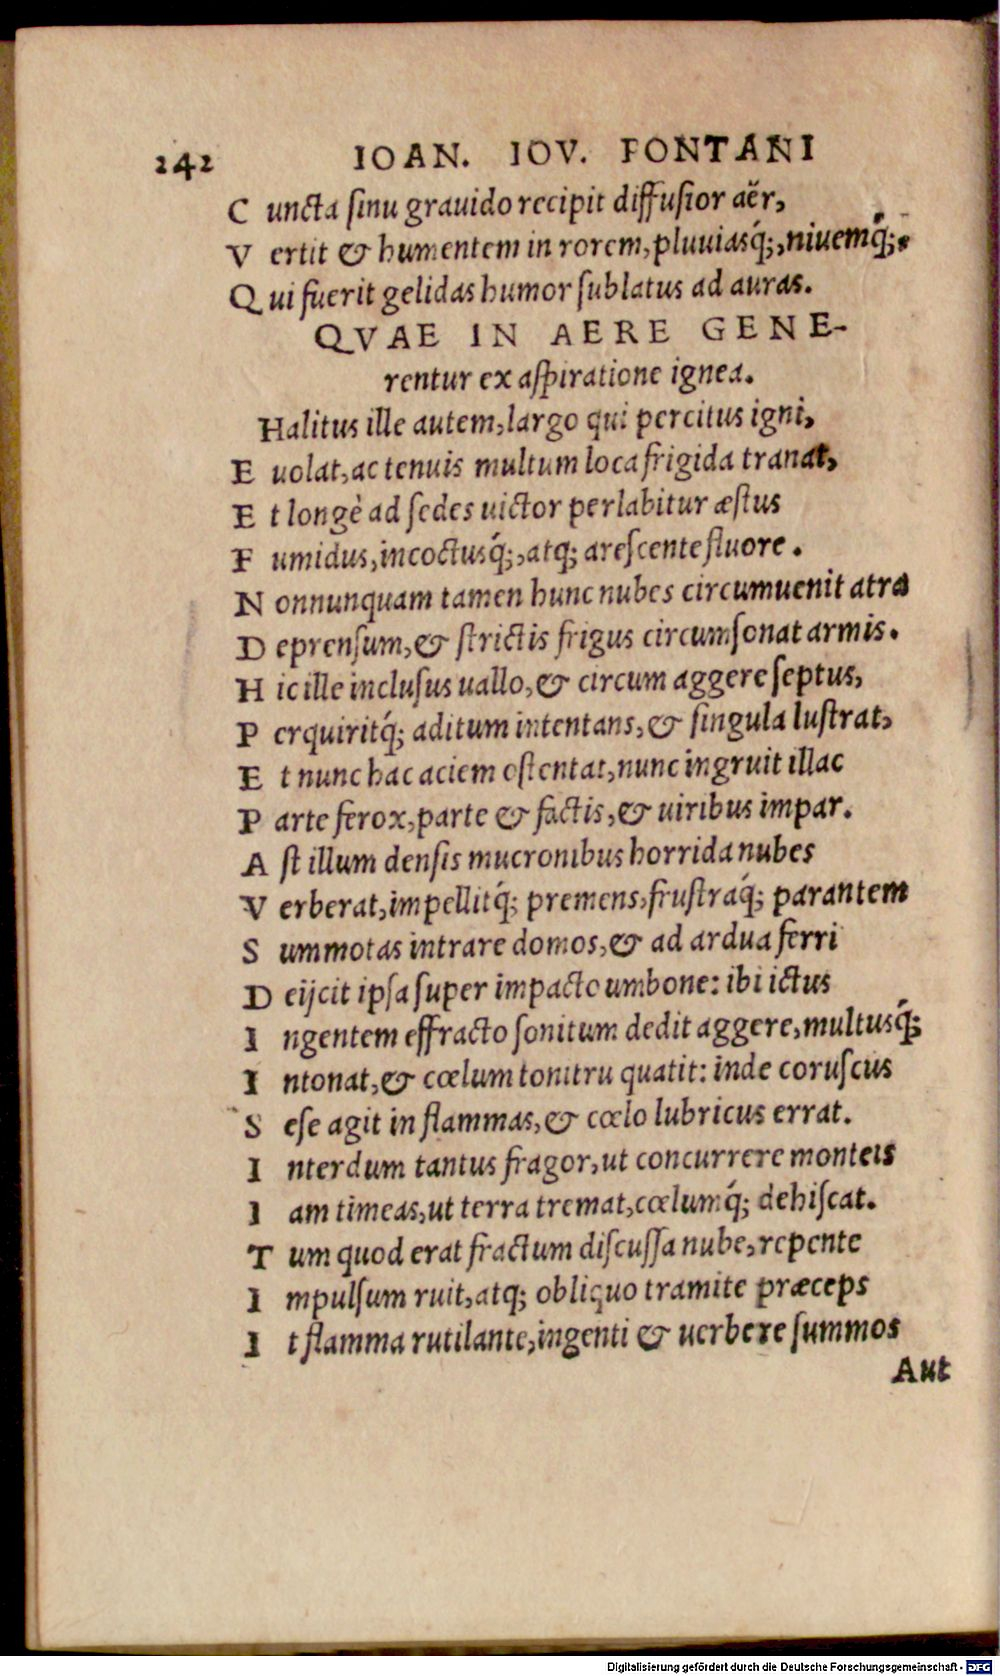 242 IOAN. IOV. PONTANI
C uncta ſinu grauido recipit diffuſior aër,
V ertit & humentem in rorem, pluuiasq́;, niuemq́;.
Q ui fuerit gelidas humor ſublatus ad auras.
QVAE IN AERE GENE-
rentur ex aſpiratione ignea.
Halitus ille autem, largo qui percitus igni,
E uolat, ac tenuis multum loca frigida tranat,
E t longè ad ſedes uictor perlabitur æſtus
F umidus, incoctusq́;, atq; areſcente fluore.
N onnunquam tamen hunc nubes circumuenit atra
D eprenſum, & ſtrictis frigus circumſonat armis.
H ic ille incluſus uallo, & circum aggere ſeptus,
P erquiritq́; aditum intentans, & ſingula luſtrat,
E t nunc hac aciem oſtentat, nunc ingruit illac
P arte ferox, parte & factis, & uiribus impar.
A ſt illum denſis mucronibus horrida nubes
V erberat, impellitq́; premens, fruſtraq́; parantem
S ummotas intrare domos, & ad ardua ferri
D eijcit ipſa ſuper impacto umbone: ibi ictus
I ngentem effracto ſonitum dedit aggere, multusq́;
I ntonat, & cœlum tonitru quatit: inde coruſcus
S eſe agit in flammas, & cœlo lubricus errat.
I nterdum tantus fragor, ut concurrere monteis
I am timeas, ut terra tremat, cœlumq́; dehiſcat.
T um quod erat fractum diſcuſſa nube, repente
I mpulſum ruit, atq; obliquo tramite præceps
I t flamma rutilante, ingenti & uerbere ſummos
Aut
Digitalisierung gefördert durch die Deutsche Forschungsgemeinschaft - DFG